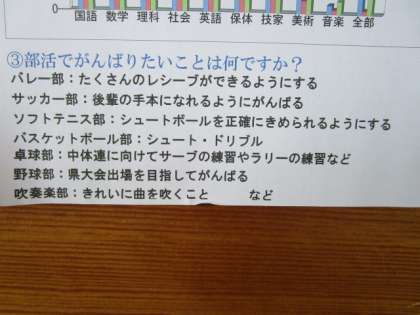 0
国語 数学 理科 社会 英語 保体 技家 美術 音楽 全部
③部活でがんばりたいことは何ですか？
バレー部：たくさんのレシーブができるようにする
サッカー部：後輩の手本になれるようにがんばる
ソフトテニス部：シュートボールを正確にきめられるようにする
バスケットボール部：シュート・ドリブル
卓球部：中体連に向けてサーブの練習やラリーの練習など
野球部：県大会出場を目指してがんばる
吹奏楽部：きれいに曲を吹くこと　　　など